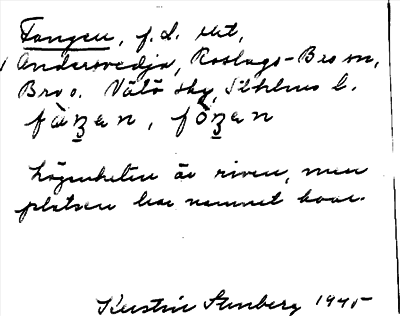 Fangen, f.d. utt,
Andersvedja, Roslags-Bro sn,
Bro o. Vätö skg, Sthlms l.
fàʒen, fòʒen
Lägenheten är riven, men
platsen har namnet kvar.
Kerstin Stenberg 1945